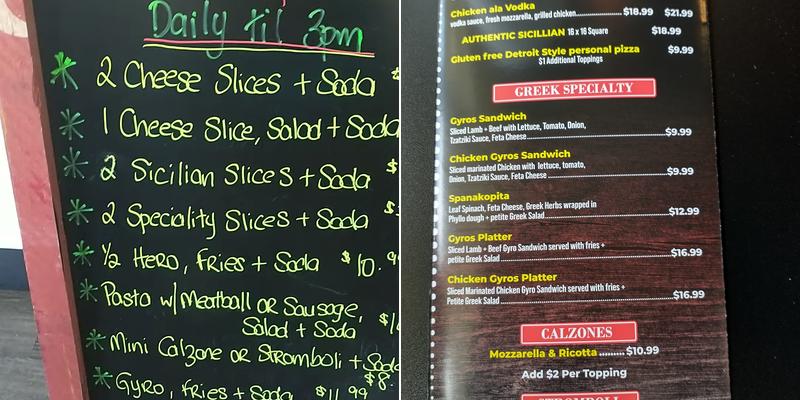 Daily til 3pm
* 2 Cheese Slices + Soda
* 1 Cheese Slice, Salad + Soda
* 2 Sicilian Slices + Soda $
* 2 Speciality Slices + Soda
* 1/2 Hero, Fries + Soda $10.9
* Pasta w/ Meatball or Sausage,
Salad + Soda $1
* Mini Calzone or Stromboli + Soda
$8.
* Gyro, Fries + Soda $11.99
Chicken ala Vodka
vodka sauce, fresh mozzarella, grilled chicken $18.99 $21.99
AUTHENTIC SICILLIAN 16 x 16 Square $18.99
Gluten free Detroit Style personal pizza $9.99
$1 Additional Toppings
GREEK SPECIALTY
Gyros Sandwich
Sliced Lamb + Beef with Lettuce, Tomato, Onion,
Tzatziki Sauce, Feta Cheese $9.99
Chicken Gyros Sandwich
Sliced marinated Chicken with lettuce, tomato,
Onion, Tzatziki Sauce, Feta Cheese $9.99
Spanakopita
Leaf Spinach, Feta Cheese, Greek Herbs wrapped in
Phyllo dough + petite Greek Salad $12.99
Gyros Platter
Sliced Lamb + Beef Gyro Sandwich served with fries +
petite Greek Salad $16.99
Chicken Gyros Platter
Sliced Marinated Chicken Gyro Sandwich served with fries +
Petite Greek Salad $16.99
CALZONES
Mozzarella & Ricotta ......... $10.99
Add $2 Per Topping
STROMBOLI